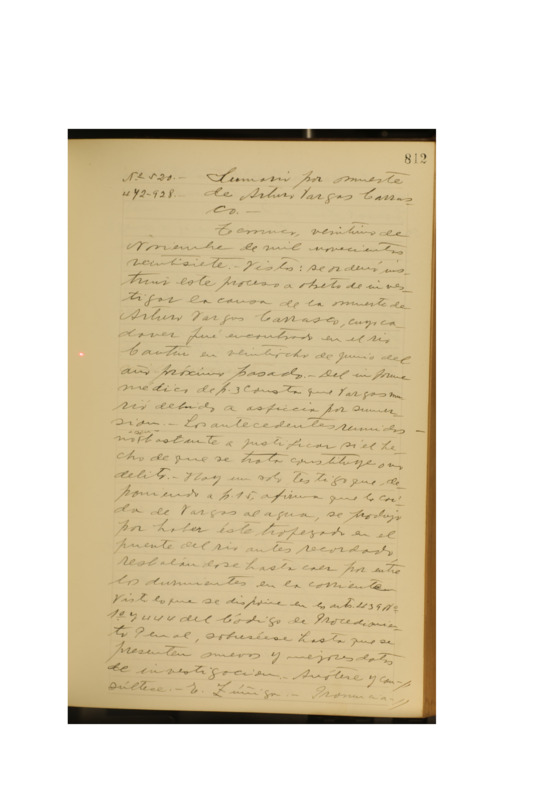 812
Nº 520.- Sumario por muerte
472-928. de Arturo Vargas Carras-
co.-
Temuco, veintiuno de
Noviembre de mil novecientos
veintisiete.- Visto: se ordenó ins-
truir este proceso a objeto de inves-
tigar la causa de la muerte de
Arturo Vargas Carrasco, cuyo ca
daver fué encontrado en el rio
Cautin en veintiocho de Junio del
año próximo pasado.- Del informe
medico de f. 3 consta que Vargas mu
rió debido a asficia por sumer-
sion.- Los antecedentes reunidos
no bastante a justificar si el he-
cho de que se trata constituye o no
delito.- Hay un solo testigo que, de-
poniendo a f. 15, afirma que la cai-
da de Vargas al agua, se produjo
por haber éste tropezado en el
puente del rio antes recordado,
resbalandose hasta caer por entre
los durmientes en la corriente
Visto lo que se dispone en los arts. 439 Nº
1º y 444 del Código de Procedimien-
to Penal, sobreséese hasta que se
presenten nuevos y mejores datos
de investigación.- Anótese y con-
súltese.- E. Zúñiga.- Pronuncia-